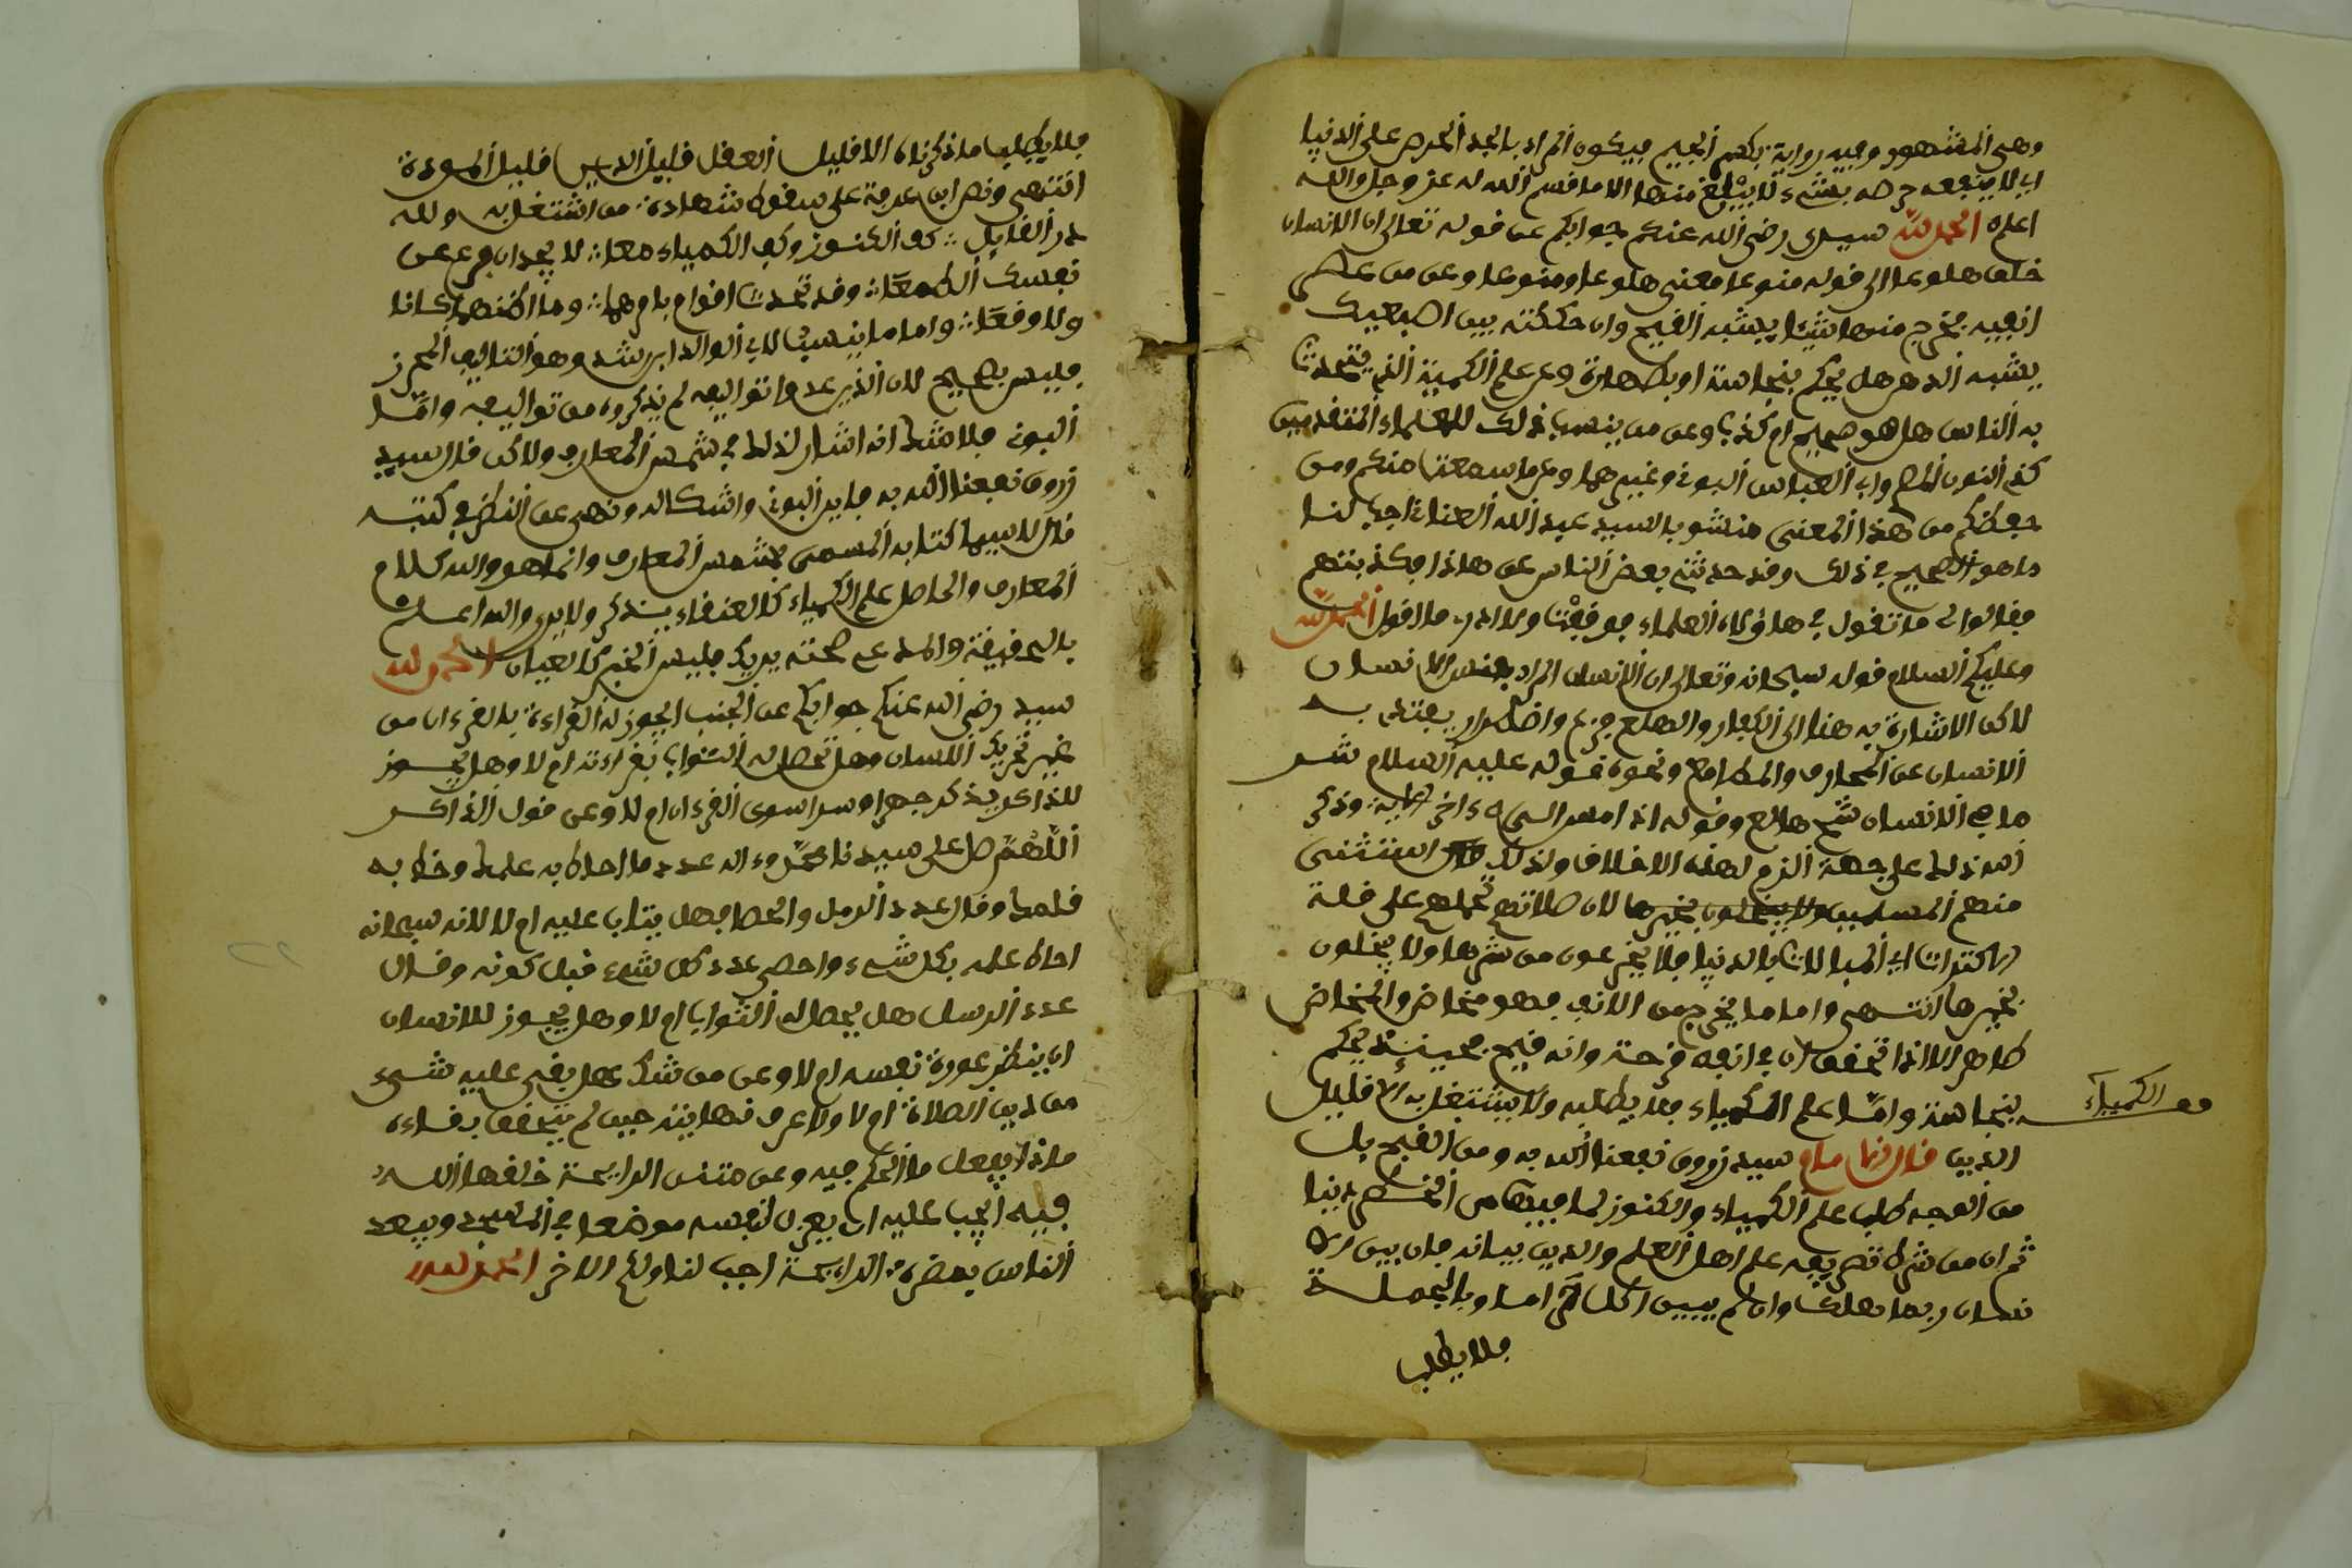 وهى المشهور وفيه رواية بكسر الجيم فيكون المراد بالجد الحرص على الدنيا
اى لا ينفعه حرصه بشىء لا يبلغ منها الا ما قسم الله له عز وجل والله
اعلم الحمد لله سيدى رضى الله عنكم جوابكم عن قوله تعالى ان الانسان
خلق هلوعا الى قوله منوعا معنى هلوعا ومنوعا وعن من عصر
انفيه فخرج منها شيئا يشبه القيح وان حككته بين اصبعيك
يشبه الدهن هل يحكم بنجاسته او بطهارة وعن علم الكمية الذى يتحدث
به الناس هل هو صحيح ام كذب وعن من ينسب ذلك للعلماء المتقدمين
كذى النون المصرى وابى العباس البونى وغيرهما وعن ما سمعت منكم ومن
حفظكم من هذا المعنى منشوب للسيد عبد الله العنابى اجب لنا
ما هو الصحيح فى ذلك وقد حدثنى بعض الناس عن هاذا فكذبتهم
فقالوا لى ما تقول فى هاؤلاء العلماء فوقفت ولا ادرى ما اقول الحمد لله
وعليكم السلام قوله سبحانه وتعالى ان الانسان المراد جنس الانسان
لاكن الاشارة به هنا الى الكفار والهلع جزع واضطرار يعترى به
الانسان عن المخاوف والمطامع ونحوه قوله عليه السلام شر
ما فى الانسان شح هالع وقوله اذا مسه الشر الى ءاخر الاية وذكر
الله ذلك على جهة الذم لهذه الاخلاق ولذلك استثنى
منهم المسلمين ولا يبخلون بخيرها لان صلاتهم تحملهم على قلة
الاكتراث اى المبالات بالدنيا فلا يجزعون من شرها ولا يبخلون
بخيرها انتهى واما ما يخرج من الانف فهو مخاض والمخاض
طاهر الا اذا تحقق ان فى انفه قرحة وانه قيح فحينئذ يحكم
بنجاسته وامّا علم الكمياء فلا يطلبه ولا يشتغل به الا قليل
قف الكمياء
الدين قال الامام سيدى زروق نفعنا الله به ومن القبيح بل
من العجب طلب علم الكمياء والكنوز لما فيها من الخسر دنيا
ثم ان من شرط تصريفه علم اهل العلم والدين بيانه فان بين لكل
انسان ربما هلك وان لم يبين اكل حراما وبالجملة
فلا يطلب
فلا يطلب ما ذكرناه الا قليل العقل قليل الدين قليل المروءة
انتهى ونص ابن عرفة على سقوط شهادة من اشتغل به ولله
در القايل كاف الكنوز وكاف الكمياء معا لا يوجدان فدع عن
نفسك الطمعا وقد تحدث اقوام بامرهما وما اظنهما كانا
ولا وقعا واما ما ينسب لابى الوالد ابن رشد وهو التاليف المحرز
فليس بصحيح لان الذين عدوا تواليفه لم يذكروه من تواليفه وامّا
البونى فلا شك انه اشار لذلك فى شمس المعارف ولاكن قال سيدى
زروق نفعنا الله به جانب البونى واشكاله ونهى عن النظر فى كتبه
قال لا سيما كتابه المسمى بشمس المعارف وانما هو والله كلام
المعارف والحاصل علم الكمياء كالعنقاء يذكر ولا يرى والله اعلم
بالحقيقة والمدعى صحته يريك فليس الخبر كالعيان الحمد لله
سيدى رضى الله عنكم جوابكم عن الجنب ايجوز له القراءة بالقرءان من
غير تحريك اللسان وهل تحصل له الثواب بقراءته ام لا وهل يجوز
للذاكر يذكر جهرا وسرا سوى القرءان ام لا وعن قول الذاكر
اللهمّ صل على سيدنا محمّد وءاله عدد ما احاط به علمك وخط به
قلمك وقال عدد الرمل والحصا فهل يثاب عليه ام لا لانه سبحانه
احاط علمه بكل شىء واحصى عدد كل شىء قبل كونه وقال
عدد الرسل هل يحصل له الثواب ام لا وهل يجوز للانسان
ان ينظر عورة نفسه ام لا وعن من شك هل بقى عليه شىء
من دين الصلاة ام لا ولا عرف نهايته حين لم يتحقق بقضاءه
ماذا يفعل ما الحكم فيه وعن منتن الرايحة خلقها الله
فيه ايجب عليه ان يعزل لنفسه موضعا فى المسجد ويبعد
الناس بمضرة الرايحة اجب لنا ولكم الاجر الحمد لله